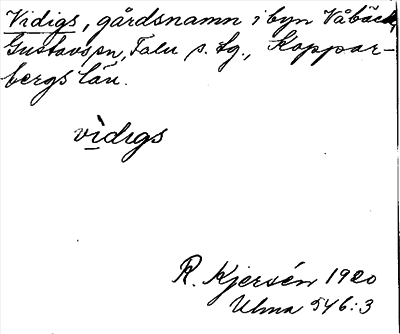 Vidigs, gårdsnamn i byn Våbäck,
Gustavs sn, Falu s. lg., Koppar-
bergs län.
vìdigs
R. Kjersén 1920
Ulma 546:3